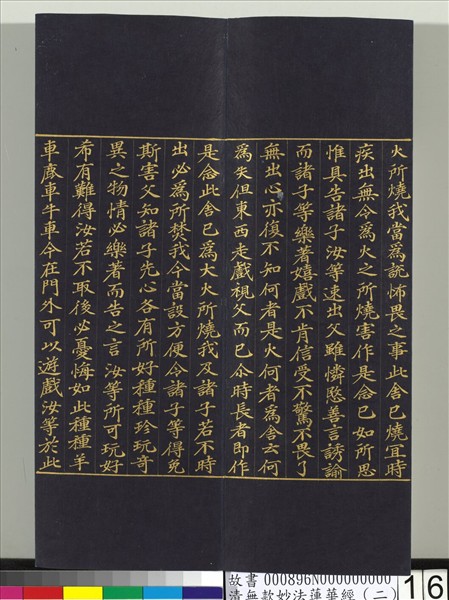 火所燒我當為說怖畏之事此舍已燒宜時
疾出無令為火之所燒害作是念已如所思
惟具告諸子汝等速出父雖憐愍善言誘諭
而諸子等樂著嬉戲不肯信受不驚不畏了
無出心亦復不知何者是火何者為舍云何
為失但東西走戲視父而已尒時長者即作
是念此舍已為大火所燒我及諸子若不時
出必為所焚我今當設方便令諸子等得免
斯害父知諸子先心各有所好種種珍玩奇
異之物情必樂著而告之言汝等所可玩好
希有難得汝若不取後必憂悔如此種種羊
車鹿車牛車今在門外可以遊戲汝等於此
故書 000896N000000000
清無款妙法蓮華經（二）
16